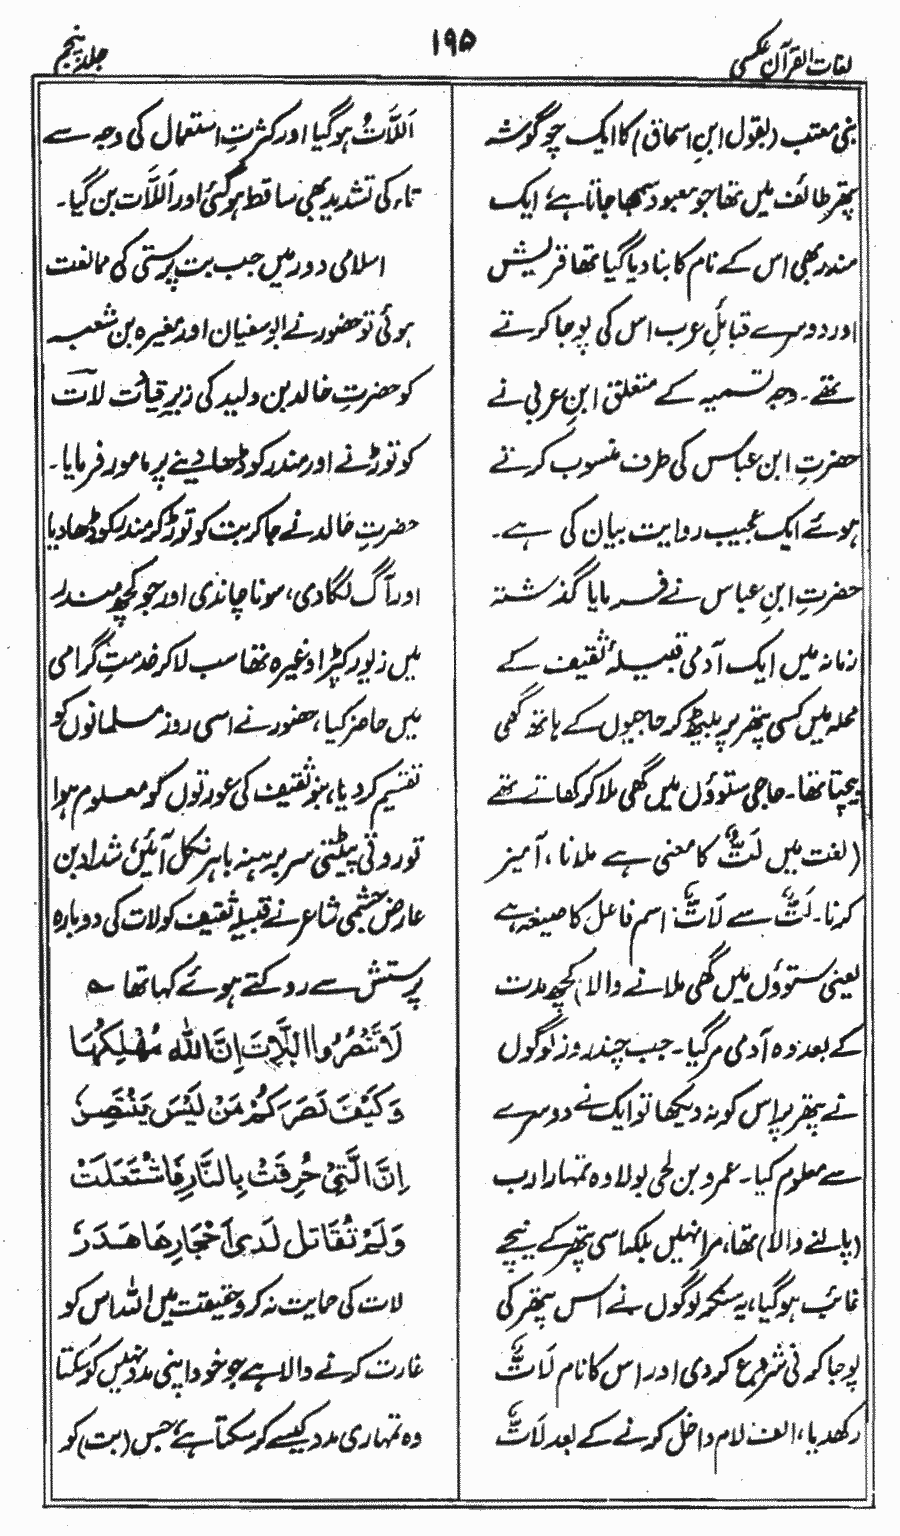 لغات القرآن عکسی
۱۹۵
جلد پنجم
بنی معتب (بقول ابنِ اسحاق) کا ایک چوگوشہ
پتھر طائف میں تھا جو معبود سمجھا جاتا ہے، ایک
مندر بھی اس کے نام کا بنا دیا گیا تھا قریش
اور دوسرے قبائلِ عرب اس کی پوجا کرتے
تھے۔ وجہ تسمیہ کے متعلق ابنِ عربی نے
حضرتِ ابن عباس کی طرف منسوب کرتے
ہوئے ایک عجیب روایت بیان کی ہے۔
حضرتِ ابنِ عباس نے فرمایا گذشتہ
زمانہ میں ایک آدمی قبیلہ ثقیف کے
محلہ میں کسی پتھر پر بیٹھ کر حاجیوں کے ہاتھ گھی
بیچتا تھا۔ حاجی ستوؤں میں گھی ملا کر کھاتے تھے
(لغت میں لَتٌّ کا معنی ہے ملانا، آمیز
کرنا۔ لَتٌّ سے لَاتٌّ اسم فاعل کا صیغہ ہے
یعنی ستوؤں میں گھی ملانے والا) کچھ مدت
کے بعد وہ آدمی مر گیا۔ جب چند روز لوگوں
نے پتھر پر اس کو نہ دیکھا تو ایک نے دوسرے
سے معلوم کیا۔ عمرو بن لحی بولا وہ تمہارا رب
(پالنے والا) تھا، مرا نہیں بلکہ اسی پتھر کے نیچے
غائب ہو گیا، یہ سنکر لوگوں نے اس پتھر کی
پوجا کرنی شروع کر دی اور اس کا نام لَاتٌّ
رکھدیا، الف لام داخل کرنے کے بعد لَاتٌّ
اَللَّاتُّ ہو گیا اور کثرتِ استعمال کی وجہ سے
تاء کی تشدید بھی ساقط ہو گئی اور اَللَّات بن گیا۔
اسلامی دور میں جب بت پرستی کی ممانعت
ہوئی تو حضور نے ابو سفیان اور مغیرہ بن شعبہ
کو حضرتِ خالد بن ولید کی زیرِ قیادت لات
کو توڑنے اور مندر کو ڈھا دینے پر مامور فرمایا۔
حضرتِ خالد نے جا کر بت کو توڑ کر مندر کو ڈھا دیا
اور آگ لگا دی، سونا چاندی اور جو کچھ مندر
میں زیور کپڑا وغیرہ تھا سب لا کر خدمتِ گرامی
میں حاضر کیا، حضور نے اسی روز مسلمانوں کو
تقسیم کر دیا، بنو ثقیف کی عورتوں کو معلوم ہوا
تو روتی پیٹتی سر برہنہ باہر نکل آئیں، شداد بن
عارض جشمی شاعر نے قبیلہ ثقیف کو لات کی دوبارہ
پرستش سے روکتے ہوئے کہا تھا ؎
لَا تَنْصُرُوا اللَّاتَ اِنَّ اللّٰهَ مُهْلِكُهَا
وَكَيْفَ نَصَرَكُمْ مَنْ لَيْسَ يَنْتَصِرُ
اِنَّ الَّتِيْ حُرِقَتْ بِالنَّارِ فَاشْتَعَلَتْ
وَلَمْ تُقَاتِلْ لَدٰى اَحْجَارِهَا هَدَرُ
لات کی حمایت نہ کرو حقیقت میں اللہ اس کو
غارت کرنے والا ہے جو خود اپنی مدد نہیں کر سکتا
وہ تمہاری مدد کیسے کر سکتا ہے، جس (بت) کو